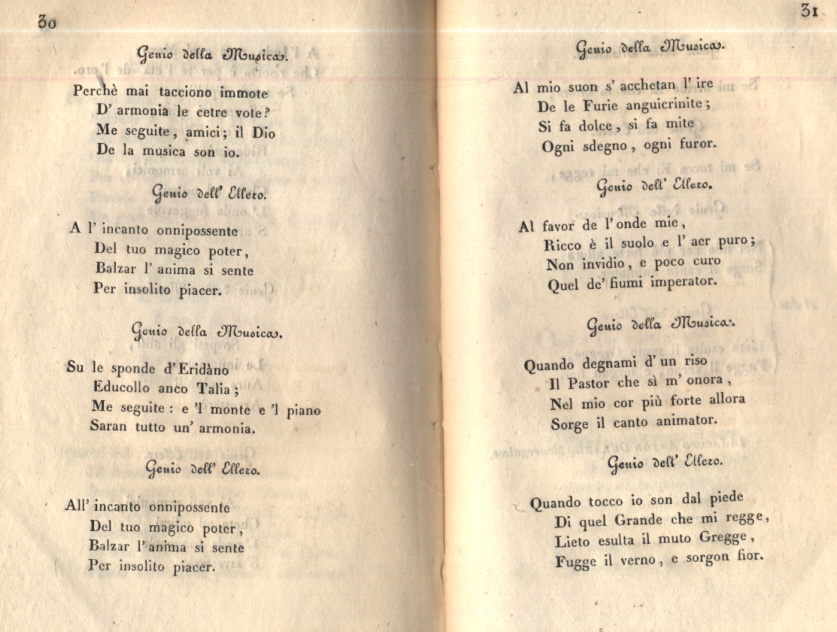 30
Genio della Musica.
Perchè mai tacciono immote
D' armonia le cetre vote?
Me seguite, amici; il Dio
De la musica son io.
Genio dell' Ellero.
A l' incanto onnipossente
Del tuo magico poter,
Balzar l' anima si sente
Per insolito piacer.
Genio della Musica.
Su le sponde d'Eridàno
Educollo anco Talia;
Me seguite: e 'l monte e 'l piano
Saran tutto un' armonia.
Genio dell' Ellero.
All' incanto onnipossente
Del tuo magico poter,
Balzar l'anima si sente
Per insolito piacer.
31
Genio della Musica.
Al mio suon s' acchetan l' ire
De le Furie anguicrinite;
Si fa dolce, si fa mite
Ogni sdegno, ogni furor.
Genio dell' Ellero.
Al favor de l'onde mie,
Ricco è il suolo e l' aer puro;
Non invidio, e poco curo
Quel de' fiumi imperator.
Genio della Musica.
Quando degnami d' un riso
Il Pastor che sì m' onora,
Nel mio cor più forte allora
Sorge il canto animator.
Genio dell' Ellero.
Quando tocco io son dal piede
Di quel Grande che mi regge,
Lieto esulta il muto Gregge,
Fugge il verno, e sorgon fior.